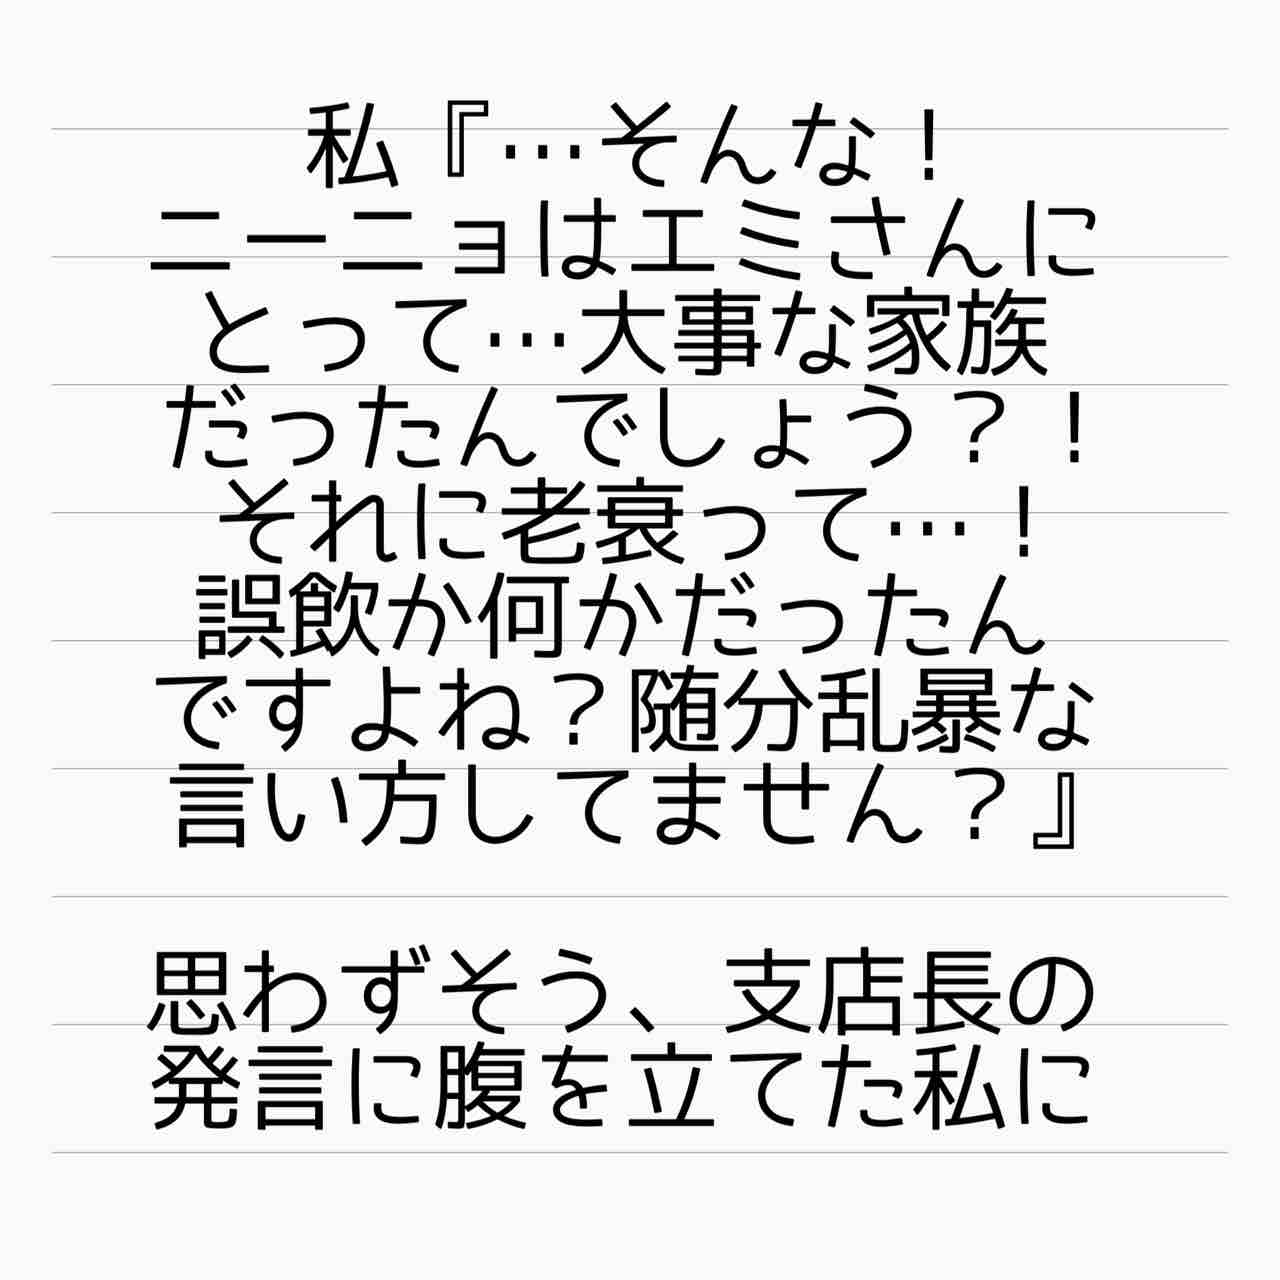 私『…そんな！
ニーニョはエミさんに
とって…大事な家族
だったんでしょう？！
それに老衰って…！
誤飲か何かだったん
ですよね？随分乱暴な
言い方してません？』
思わずそう、支店長の
発言に腹を立てた私に